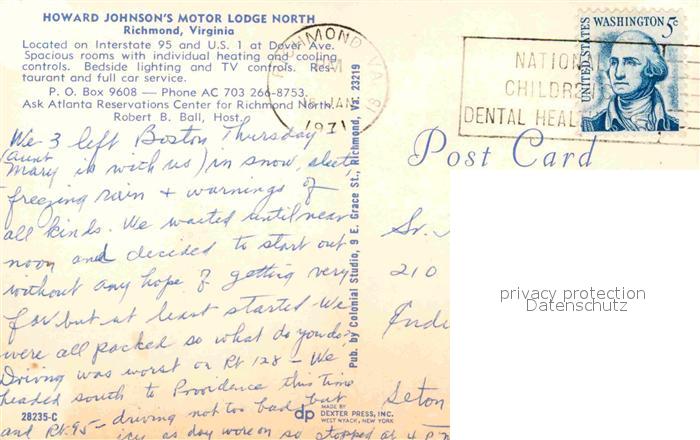 HOWARD JOHNSON'S MOTOR LODGE NORTH
Richmond, Virginia
Located on Interstate 95 and U.S. 1 at Dover Ave.
Spacious rooms with individual heating and cooling
controls. Bedside lighting and TV controls. Res-
taurant and full car service.
P. O. Box 9608 — Phone AC 703 266-8753.
Ask Atlanta Reservations Center for Richmond North.
Robert B. Ball, Host
We 3 left Boston Thursday
(aunt
Mary is with us) in snow, sleet,
freezing rain + warnings of
all kinds. We waited until near
noon and decided to start out
without any hope of getting very
far but at least started. We
were all packed so what do you do?
Driving was worst on Rt 128 - We
headed south to Providence this time
and Rt. 95 - driving not too bad but
icy as day wore on so stopped at 4 P.M
28235-C
Pub. by Colonial Studio, 9 E. Grace St., Richmond, Va. 23219
dp
MADE BY
DEXTER PRESS, INC.
WEST NYACK, NEW YORK
RICHMOND, VA
JAN
1971
NATIONA
CHILDRE
DENTAL HEAL
UNITED STATES
WASHINGTON 5c
Post Card
Sr.
210
Indi
Seton
privacy protection
Datenschutz